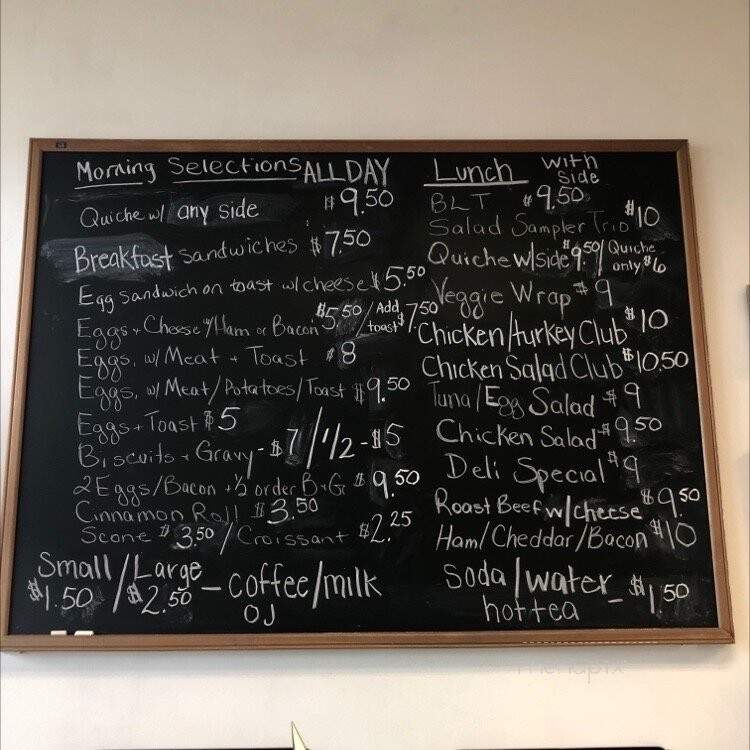 Morning Selections ALL DAY
Quiche w/ any side $9.50
Breakfast sandwiches $7.50
Egg sandwich on toast w/ cheese $5.50
Eggs + Cheese w/ Ham or Bacon $5.50 / Add toast $7.50
Eggs, w/ Meat + Toast $8
Eggs, w/ Meat/Potatoes/Toast $9.50
Eggs + Toast $5
Biscuits + Gravy - $7 / 1/2 - $5
2 Eggs/Bacon + 1/2 order B+Gr $9.50
Cinnamon Roll $3.50
Scone $3.50 / Croissant $2.25
Small / Large - coffee/milk
$1.50 / $2.50 OJ
Lunch with side
BLT $9.50
Salad Sampler Trio $10
Quiche w/side $9.50 / Quiche only $6
Veggie Wrap $9
Chicken/turkey Club $10
Chicken Salad Club $10.50
Tuna/Egg Salad $9
Chicken Salad $9.50
Deli Special $9
Roast Beef w/cheese $9.50
Ham/Cheddar/Bacon $10
Soda/water - $1.50
hot tea